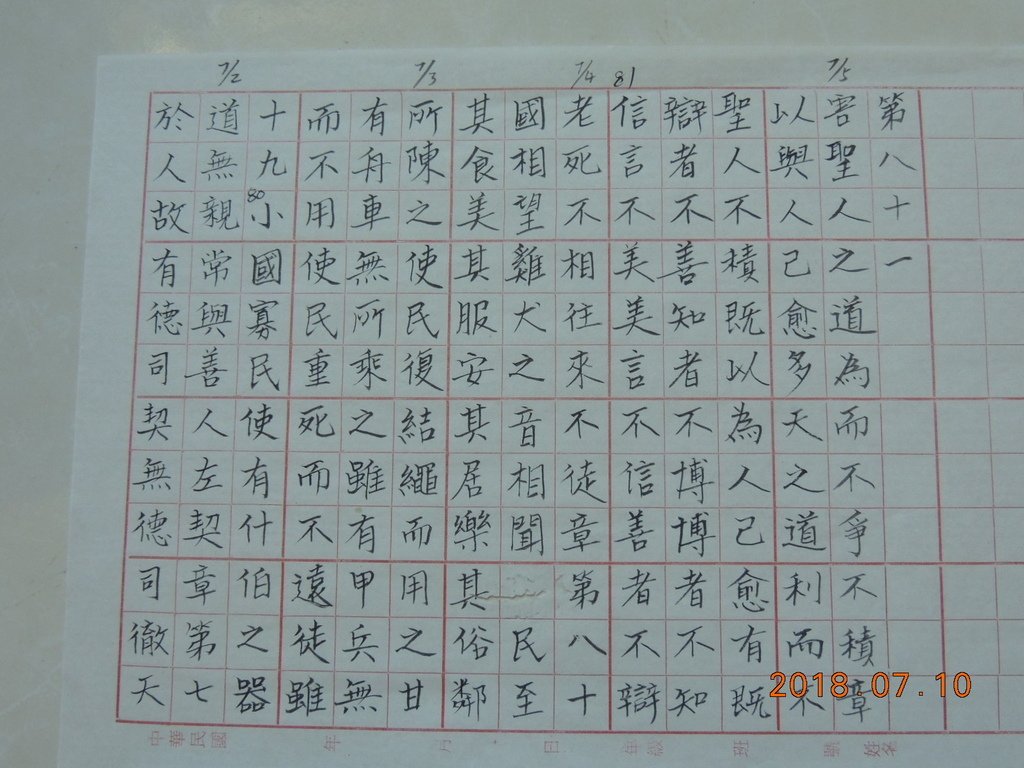 7/2 7/3 7/4 81 7/5
於人故有德司契無德司徹天
道無親常與善人左契章第七
十九80小國寡民使有什伯之器
而不用使民重死而不遠徒雖
有舟車無所乘之雖有甲兵無
所陳之使民復結繩而用之甘
其食美其服安其居樂其俗鄰
國相望雞犬之音相聞民至
老死不相往來不徒章第八十
信言不美美言不信善者不辯
辯者不善知者不博博者不知
聖人不積既以為人己愈有既
以與人己愈多天之道利而不
害聖人之道為而不爭不積章
第八十一
中華民國 年 月 日 年級 班 號 姓名
2018.07.10